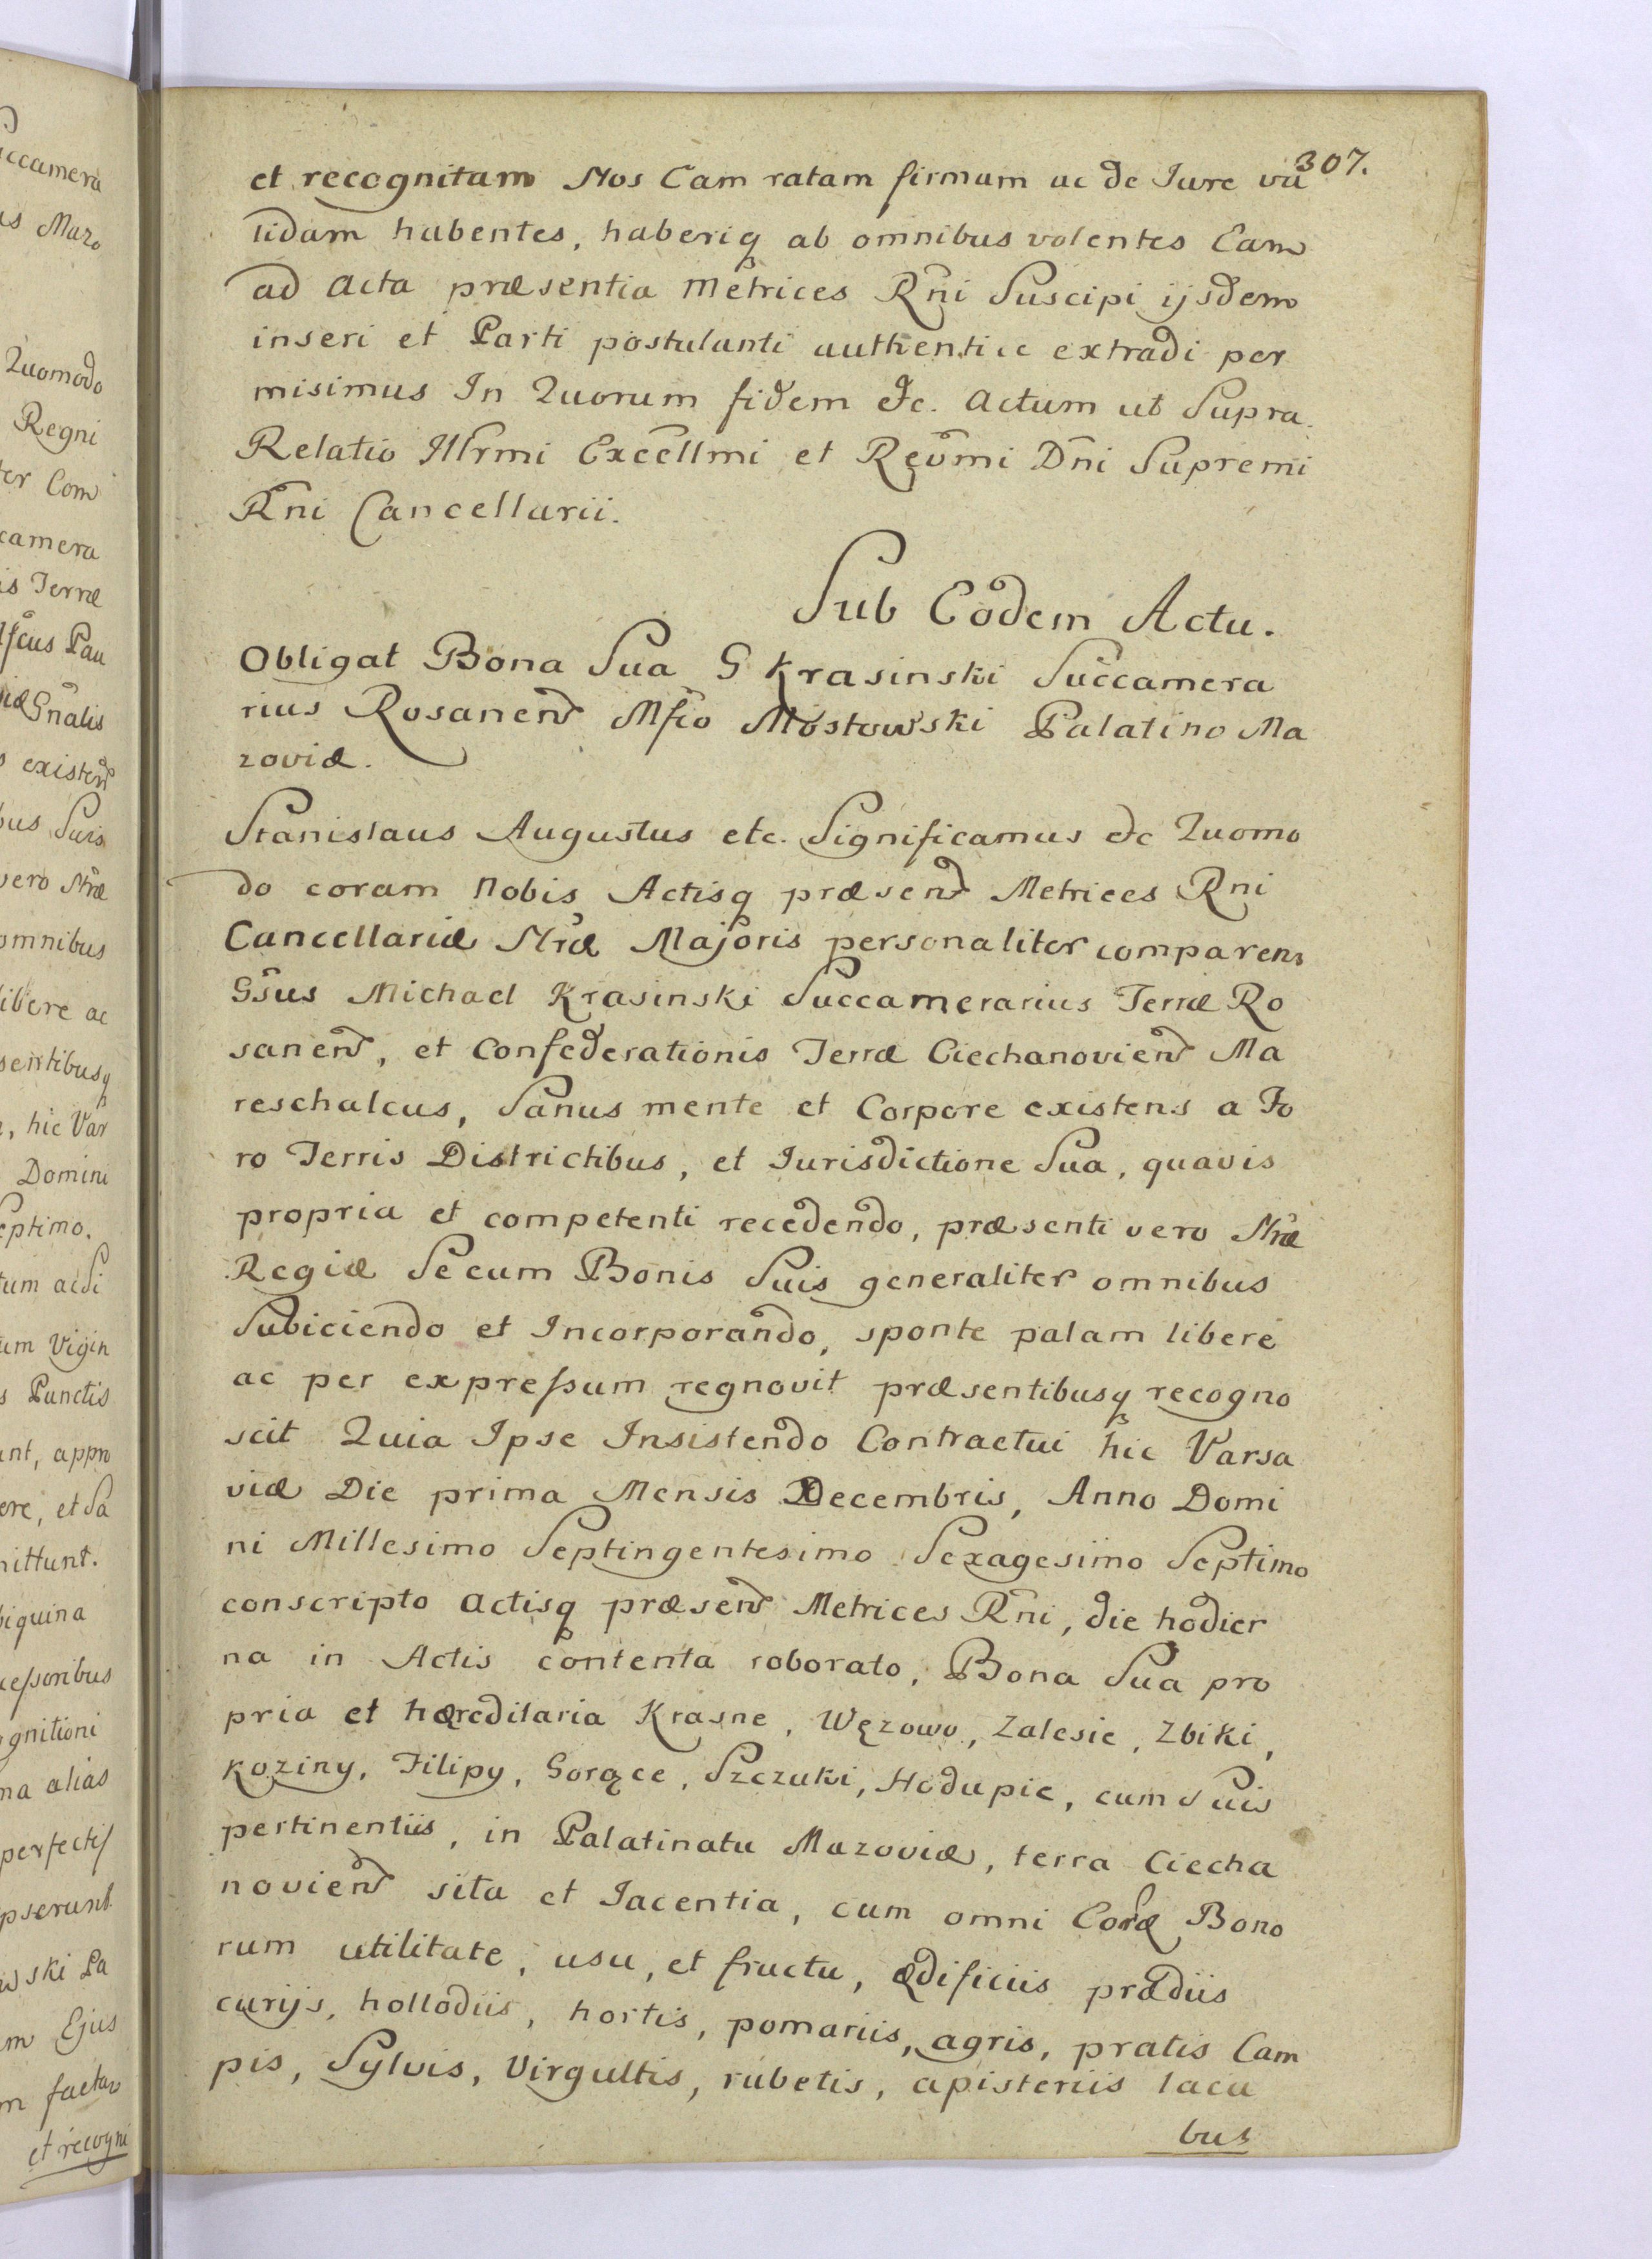 307.
et recognitam Nos Eam ratam firmam ac de Iure va
lidam habentes, haberiq ab omnibus volentes Eam
ad Acta præsentia Metrices Rni Suscipi ijsdem
inseri et Parti postulanti authentice extradi per
misimus In Quorum fidem &c. Actum ut Supra.
Relatio Illrmi Excellmi et Revmi Dni Supremi
Rni Cancellarii.
Sub Eodem Actu.
Obligat Bona Sua G Krasinski Succamera
rius Rosanen Mfco Mostowski Palatino Ma
zoviæ.
Stanislaus Augustus etc. Significamus &c Quomo
do coram Nobis Actisq præsen Metrices Rni
Cancellariæ Nræ Majoris personaliter comparens
Gsus Michael Krasinski Succamerarius Terræ Ro
sanen, et Confederationis Terræ Ciechanovien Ma
reschalcus, Sanus mente et Corpore existens a Fo
ro Terris Districtibus, et Iurisdictione Sua, quavis
propria et competenti recedendo, præsenti vero Nræ
Regiæ Se cum Bonis Suis generaliter omnibus
Subiciendo et Incorporando, sponte palam libere
ac per expressum regnovit præsentibusq recogno
scit Quia Ipse Insistendo Contractui hic Varsa
viæ Die prima Mensis Decembris, Anno Domi
ni Millesimo Septingentesimo Sexagesimo Septimo
conscripto actisq præsen Metrices Rni, die hodier
na in Actis contenta roborato, Bona Sua pro
pria et hæreditaria Krasne, Węzowo, Zalesie, Zbiki,
Koziny, Filipy, Gorące, Szczuki, Hodupie, cum Suis
pertinentiis, in Palatinatu Mazoviæ, terra Ciecha
novien sita et Iacentia, cum omni Eoræ Bono
rum utilitate, usu, et fructu, ædificiis prædiis
curijs, hollodiis, hortis, pomariis, agris, pratis Cam
pis, Sylvis, Virgultis, rubetis, apisteriis lacu
bus